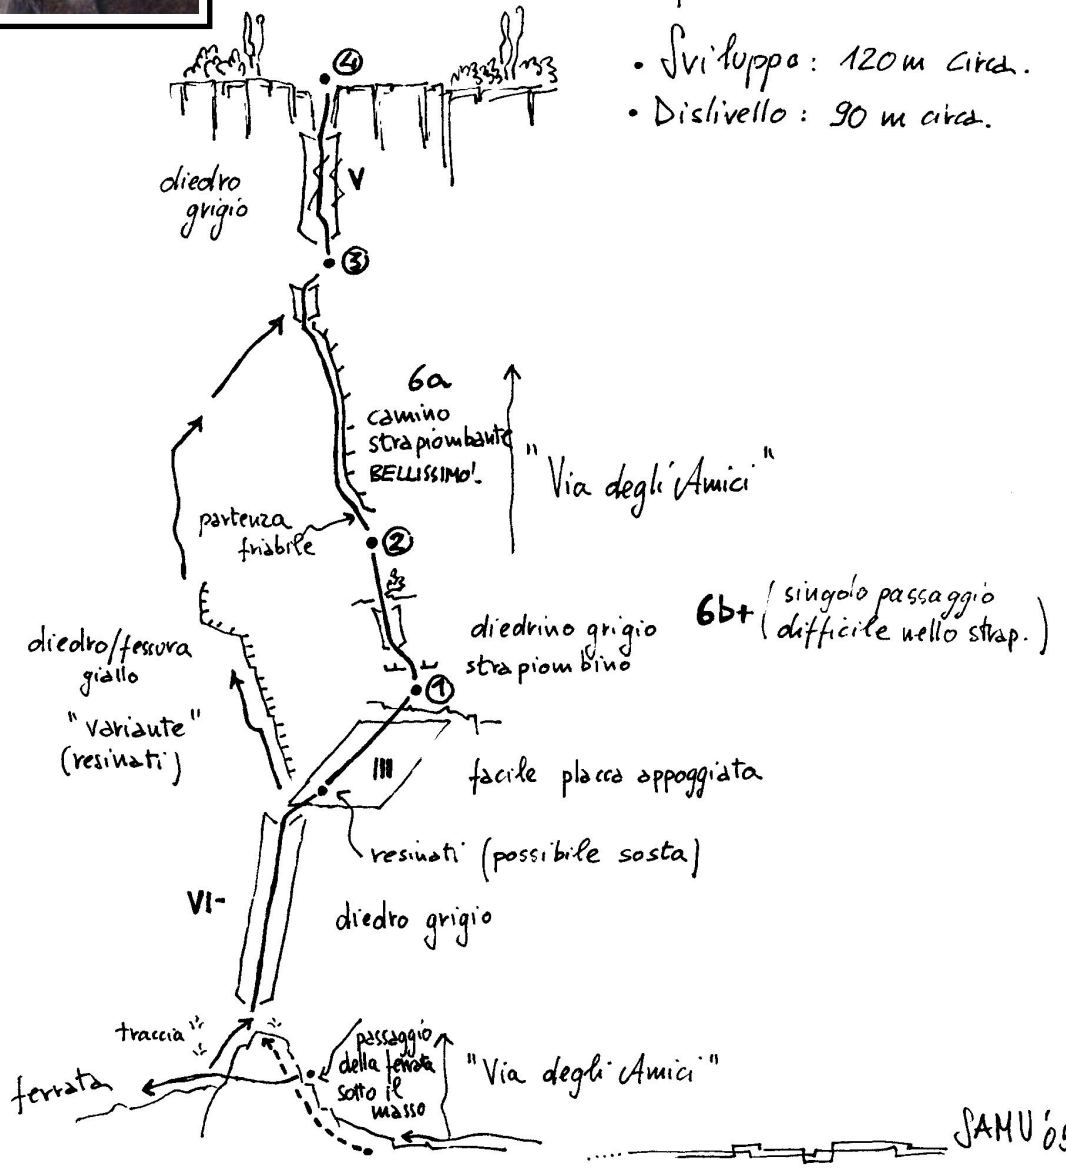 • Sviluppo: 120 m circa.
• Dislivello: 90 m circa.
4
diedro
grigio
V
3
6a
camino
strapiombante
BELLISSIMO!
"Via degli Amici"
partenza
friabile
2
diedrino grigio
strapiombino
6b+ (singolo passaggio
difficile nello strap.)
diedro/fessura
giallo
"variante"
(resinati)
1
III
facile placca appoggiata
resinati (possibile sosta)
VI-
diedro grigio
traccia
ferrata
passaggio
della ferrata
sotto il
masso
"Via degli Amici"
SAMU